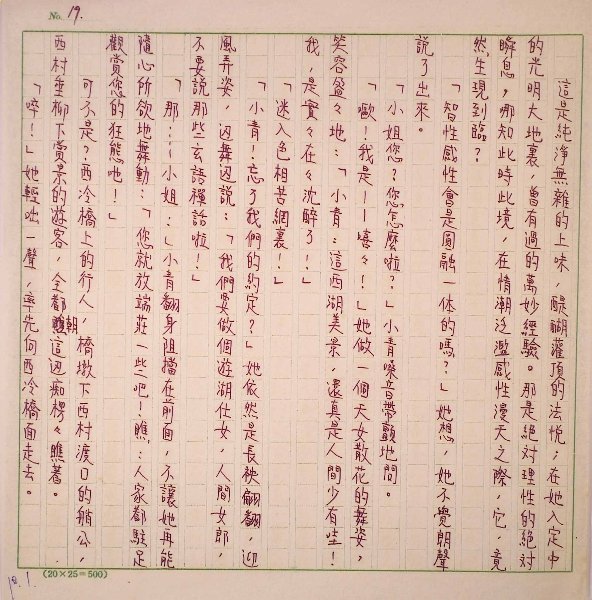 No. 19.
這是純淨無雜的上味，醍醐灌頂的法悅；在她入定中
的光明大地裏，曾有過的萬妙經驗。那是絕對理性的絕對
瞬息，哪知此時此境，在情潮泛濫感性漫天之際，它，竟
然生現到臨？
「智性感性會是圓融一体的嗎？」她想，她不覺朗聲
說了出來。
「小姐您？您怎麼啦？」小青嗓音帶顫地問。
「歐！我是——嘻々！」她做一個天女散花的舞姿，
笑容盈々地：「小青：這西湖美景，還真是人間少有哇！
我，是實々在々沈醉了！」
「迷入色相苦網裏！」
「小青！忘了我們的約定？」她依然是長袂翩翩，迎
風弄姿，迎舞迎說：「我們要做個遊湖仕女，人間女郎，
不要說那些玄語禪話啦！」
「那：：小姐：」小青翻身阻擋在前面，不讓她再能
隨心所欲地舞動：「您就放端莊一些吧！瞧：人家都駐足
觀賞您的狂態吔！」
可不是？西冷橋上的行人，橋墩下西村渡口的艄公，
西村垂柳下賞景的遊客，全都朝這边痴楞々瞧著。
「啐！」她輕咄一聲，率先向西冷橋面走去。
(20×25=500)